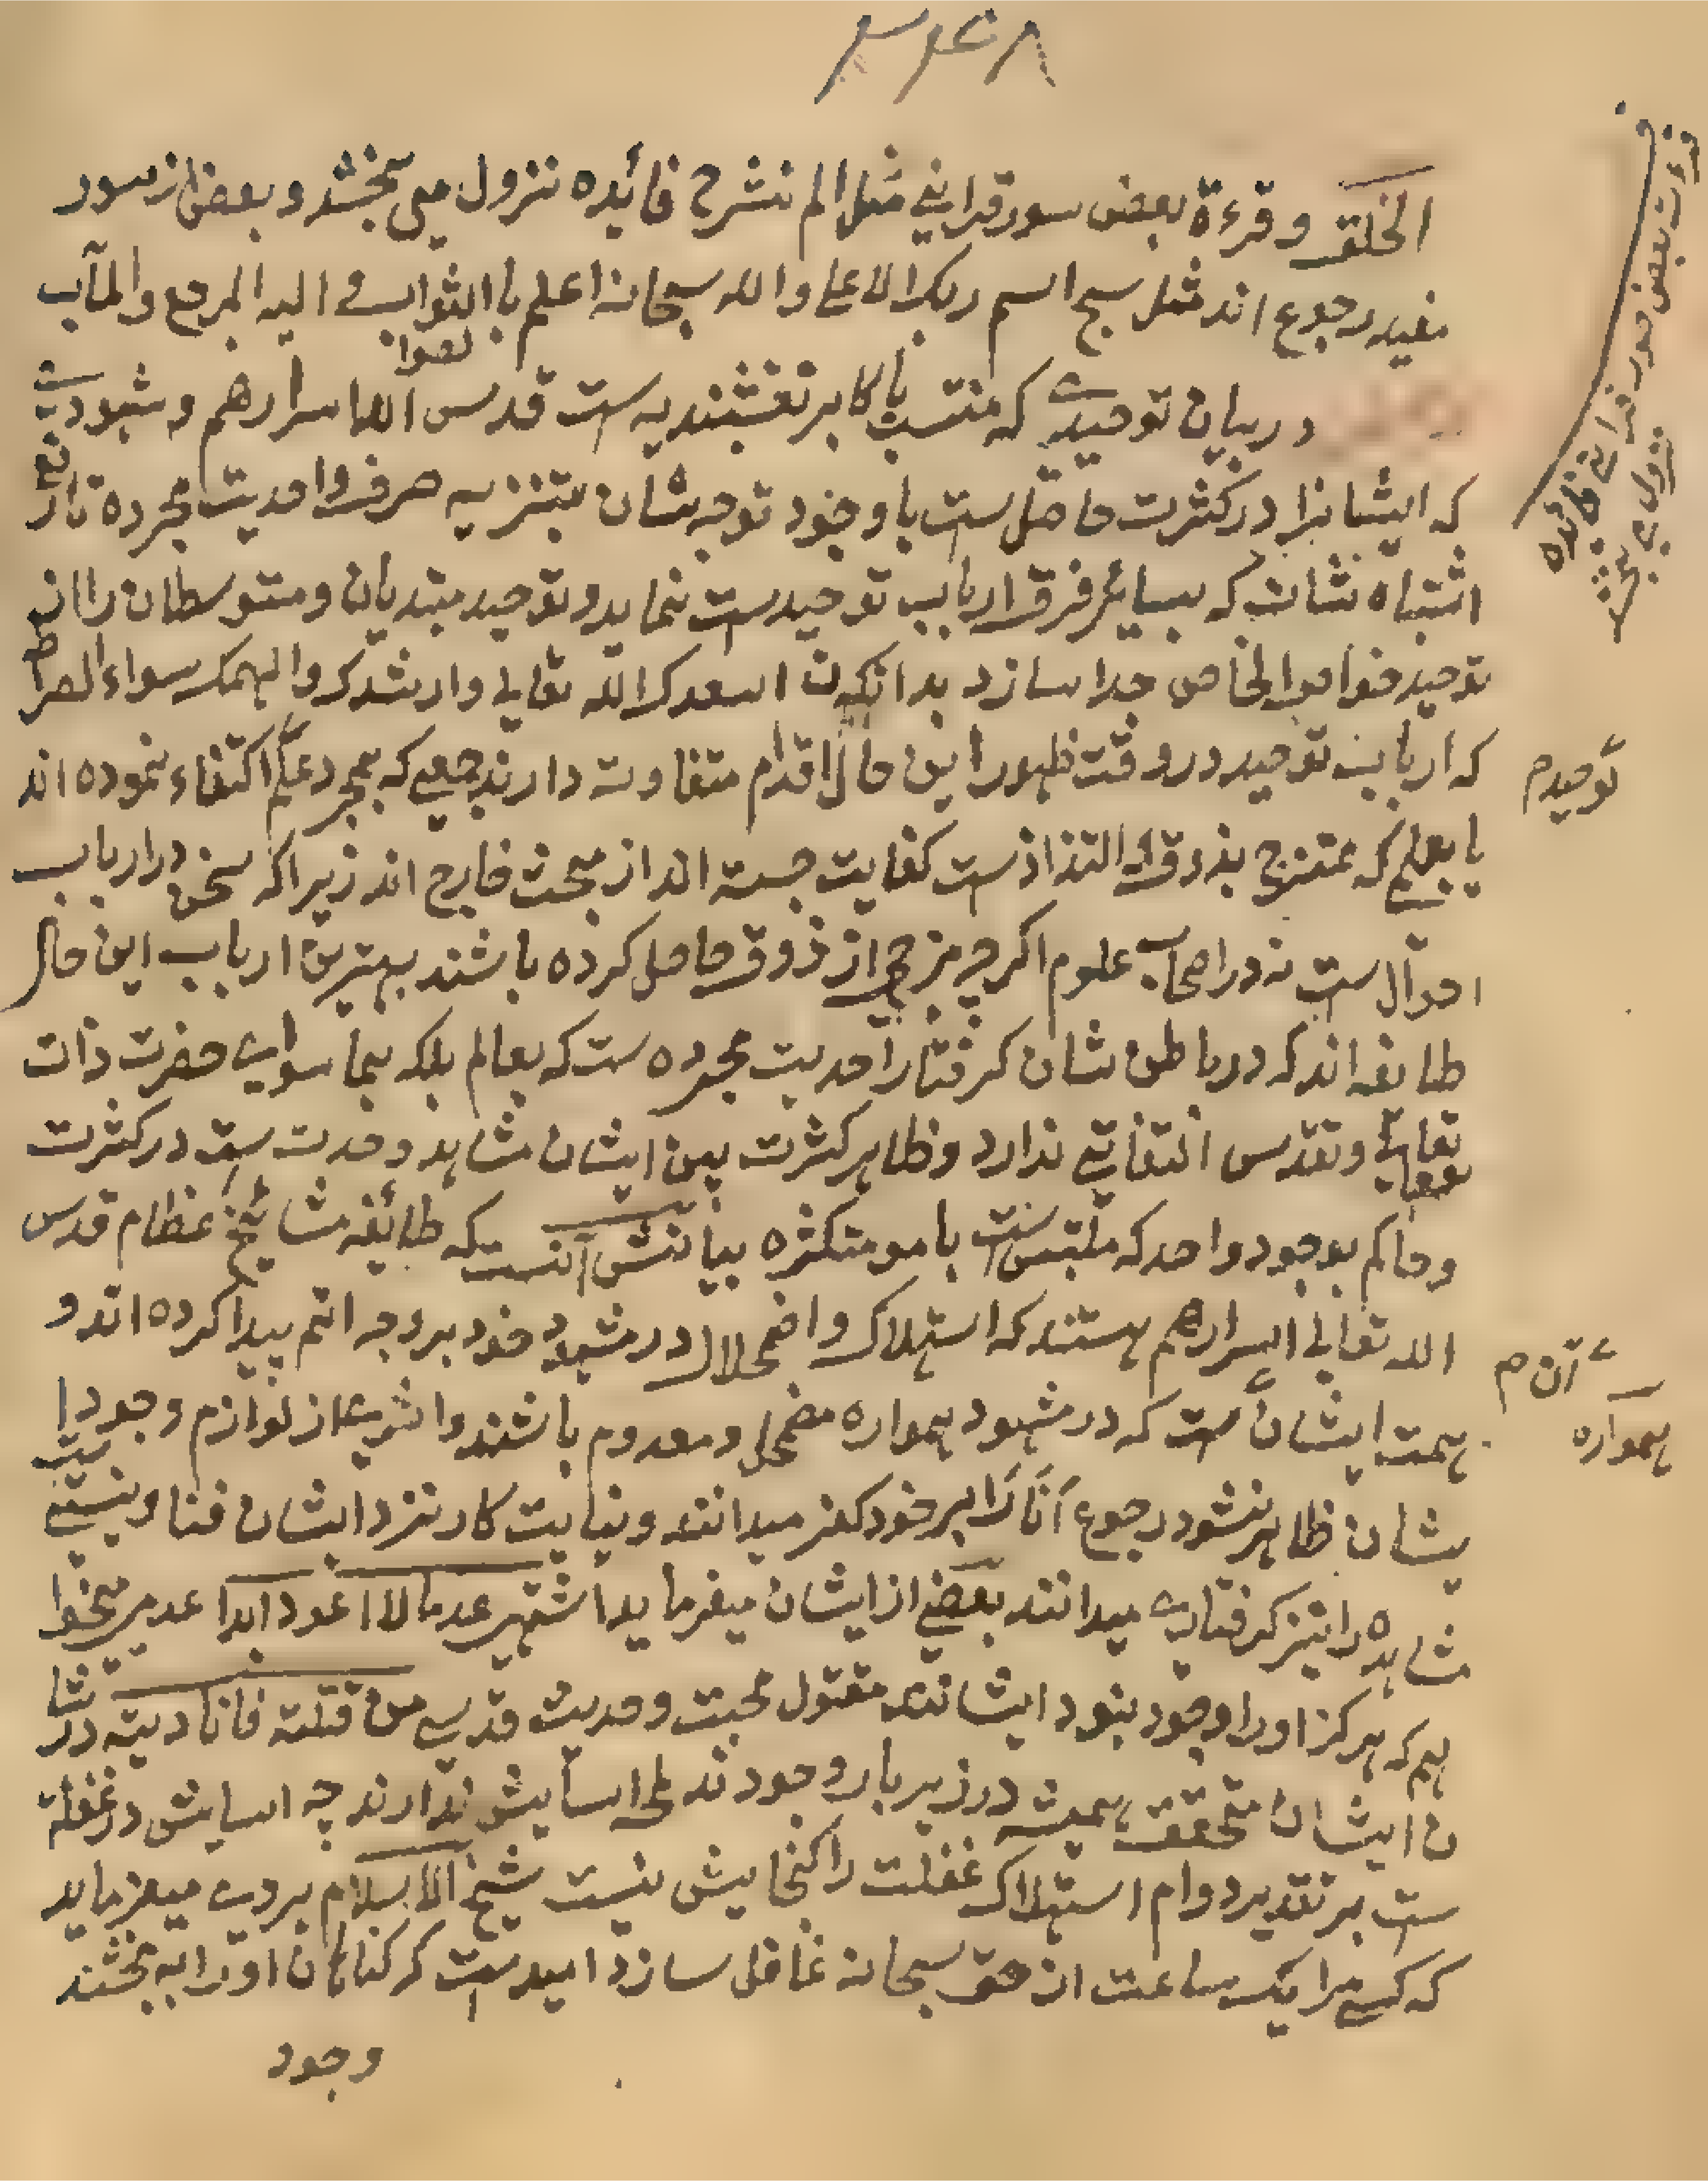 الخلق و قرءة بعض سور قرانی مثل الم نشرح فائده نزول می بخشد و بعض از سور
مفید رجوع اند مثل سبح اسم ربک الاعلی و الله سبحانه اعلم باالثواب و الیه المرجع والمآب
لصوا
در بیان توحیدی که منتسب باکابر نقشبندیه ست قدس الله اسرارهم و شهودی
که ایشانرا در کثرت حاصل ست با وجود توجه شان بتنزیه صرف و احدیت مجرده تا رفع
اشتباه شان که بسایر فرق ارباب توحید ست نماید و توحید مبتدیان و متوسطان را از
توحید خواص الخاص جدا سازد بدانکه اسعدک الله تعالی و ارشدک و الهمک سواء الصراط
که ارباب توحید در وقت ظهور این حال اقدام متفاوت دارند جمعی که بمجرد علم اکتفاء نموده اند
یا بعلم که ممتزج بذوق و التذاذ ست کفایت جسته اند از مبحث خارج اند زیرا که سخن در ارباب
احوال ست نه در اصحاب علوم اگرچه مزجی از ذوق حاصل کرده باشند بهترین ارباب این حال
طایفه اند که در باطن شان گرفتار احدیت مجرده ست که بعالم بلکه بما سوای حضرت ذات
تعالی و تقدس التفاتی ندارد و ظاهر کثرت بین ایشان مشاهد وحدت ست در کثرت
تعالی
و حاکم بوجود واحد که ملتبس ست بامو متکثره بیانش آنست که طائفه مشایخ عظام قدس
الله تعالی اسرارهم هستند که استهلاک و اضمحلال در مشهود خود بر وجه اتم پیدا کرده اند و
همت ایشان ست که در مشهود همواره مضمحل و معدوم باشند و اثری از لوازم وجود ا
یشان ظاهر نشود رجوع اَنَا را بر خود کفر میدانند و نهایت کار نزد ایشان فنا و نیستی ست
مشاهده را نیز گرفتاری میدانند بعضی از ایشان میفرماید اشتهی عدما لا اعود ابدا عدمی میخوا
هم که هرگز او را وجود نبود ایشانند مقتول محبت و حدیث قدسی من قتلته فانا دیته در شا
ن ایشان متحقق همیشه در زیر بار وجودند لمحه اسایش ندارند چه اسایش در غفلة
ست بر تقدیر دوام استهلاک غفلت را گنجایش نیست شیخ الاسلام هروی میفرماید
که کسی مرا یک ساعت از حق سبحانه غافل سازد امید ست که گناهان او را به بخشند
وجود
قرءت بعض سور قرانی فائده
نزول می بخشد
توحید م
آن م
همواره